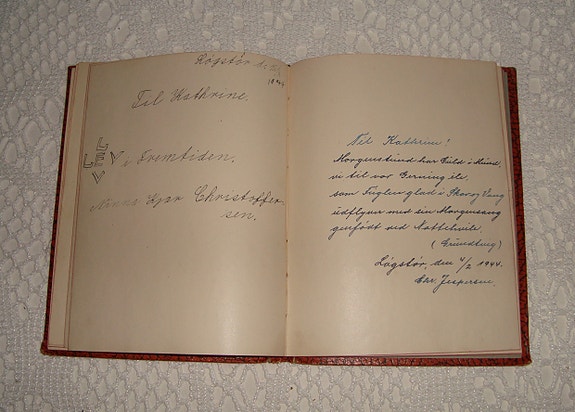 Løgstør d.
1944
Til Kathrine.
LEV i Fremtiden.
Minna Kjær Christoffer-
sen.
Til Kathrine!
Morgenstund har Guld i Mund,
vi til vor Gerning ile,
som Fuglen glad i Skov og Vang
udflyver med sin Morgensang
genfødt ved Nattehvile.
(Grundtvig)
Løgstør, den 4/2 1944.
Chr. Jespersen.